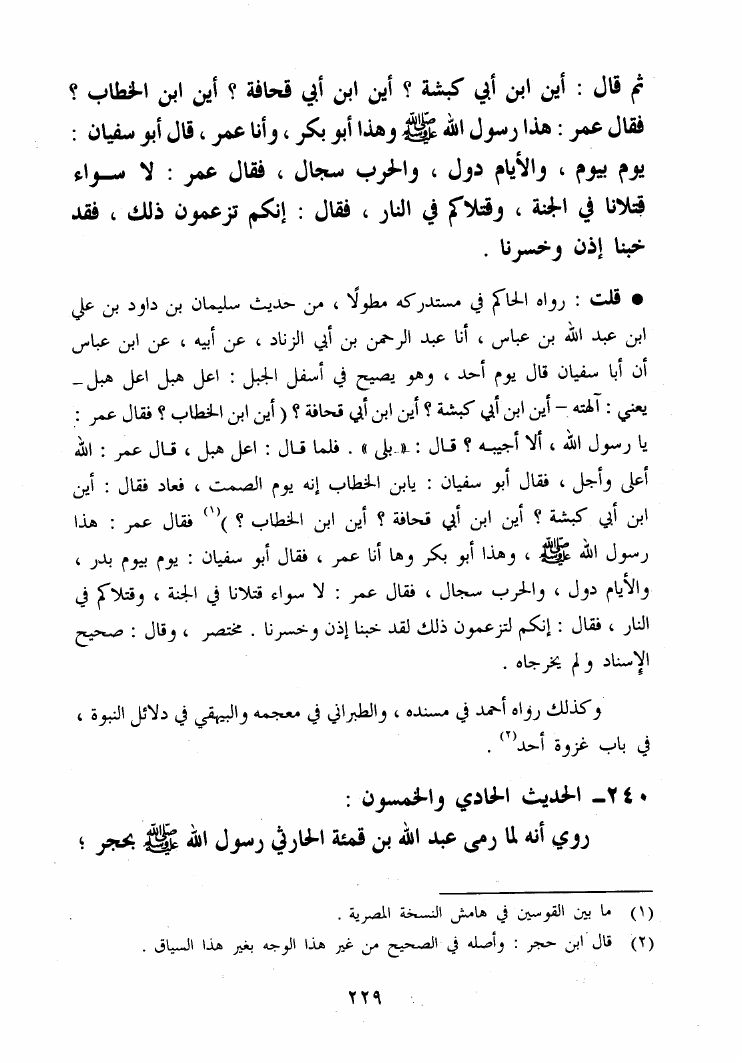 ثم قال : أين ابن أبي كبشة ؟ أين ابن أبي قحافة ؟ أين ابن الخطاب ؟
فقال عمر : هذا رسول الله ﷺ وهذا أبو بكر ، وأنا عمر ، قال أبو سفيان :
يوم بيوم ، والأيام دول ، والحرب سجال ، فقال عمر : لا سـواء
قتلانا في الجنة ، وقتلاكم في النار ، فقال : إنكم تزعمون ذلك ، فقد
خبنا إذن وخسرنا .
● قلت : رواه الحاكم في مستدركه مطولًا ، من حديث سليمان بن داود بن علي
ابن عبد الله بن عباس ، أنا عبد الرحمن بن أبي الزناد ، عن أبيه ، عن ابن عباس
أن أبا سفيان قال يوم أحد ، وهو يصيح في أسفل الجبل : اعل هبل اعل هبل –
يعني : آلهته – أين ابن أبي كبشة ؟ أين ابن أبي قحافة ؟ ( أين ابن الخطاب ؟ فقال عمر :
يا رسول الله ، ألا أجيبـه ؟ قـال : « بلى » . فلما قـال : اعل هبل ، قـال عمر : الله
أعلى وأجل ، فقال أبو سفيان : يابن الخطاب إنه يوم الصمت ، فعاد فقال : أين
ابن أبي كبشة ؟ أين ابن أبي قحافة ؟ أين ابن الخطاب ؟ )(١) فقال عمر : هذا
رسول الله ﷺ ، وهذا أبو بكر وها أنا عمر ، فقال أبو سفيان : يوم بيوم بدر ،
والأيام دول ، والحرب سجال ، فقال عمر : لا سواء قتلانا في الجنة ، وقتلاكم في
النار ، فقال : إنكم لتزعمون ذلك لقد خبنا إذن وخسرنا . مختصر ، وقال : صحيح
الإسناد ولم يخرجاه .
وكذلك رواه أحمد في مسنده ، والطبراني في معجمه والبيهقي في دلائل النبوة ،
في باب غزوة أحد(٢) .
٢٤٠ـ الحديث الحادي والخمسون :
روي أنه لما رمى عبد الله بن قمئة الحارثي رسول الله ﷺ بحجر ؛
(١) ما بين القوسين في هامش النسخة المصرية .
(٢) قال ابن حجر : وأصله في الصحيح من غير هذا الوجه بغير هذا السياق .
٢٢٩